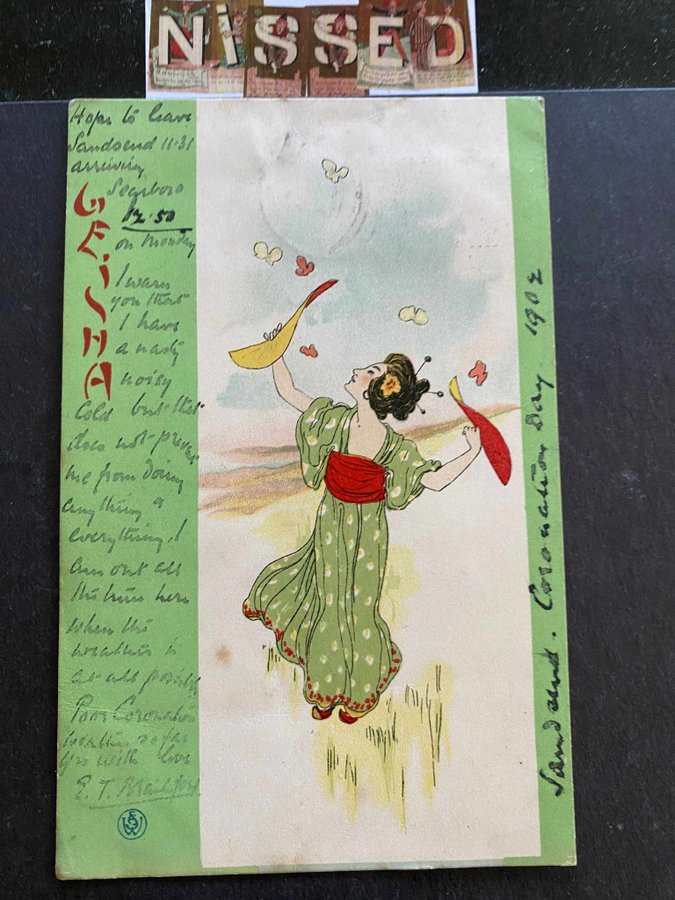 NiSSED
Hope to leave
Sandsend 11.31
arriving
Scarboro
12.50
on Monday
GEISHA
I warn
you that
I have
a nasty
noisy
Cold but that
does not prevent
me from doing
anything &
everything. I
am out all
the time here
when the
weather is
at all possible
Poor Coronation
weather so far
Yrs with love
E. T.
Sandsend. Coronation Day. 1902